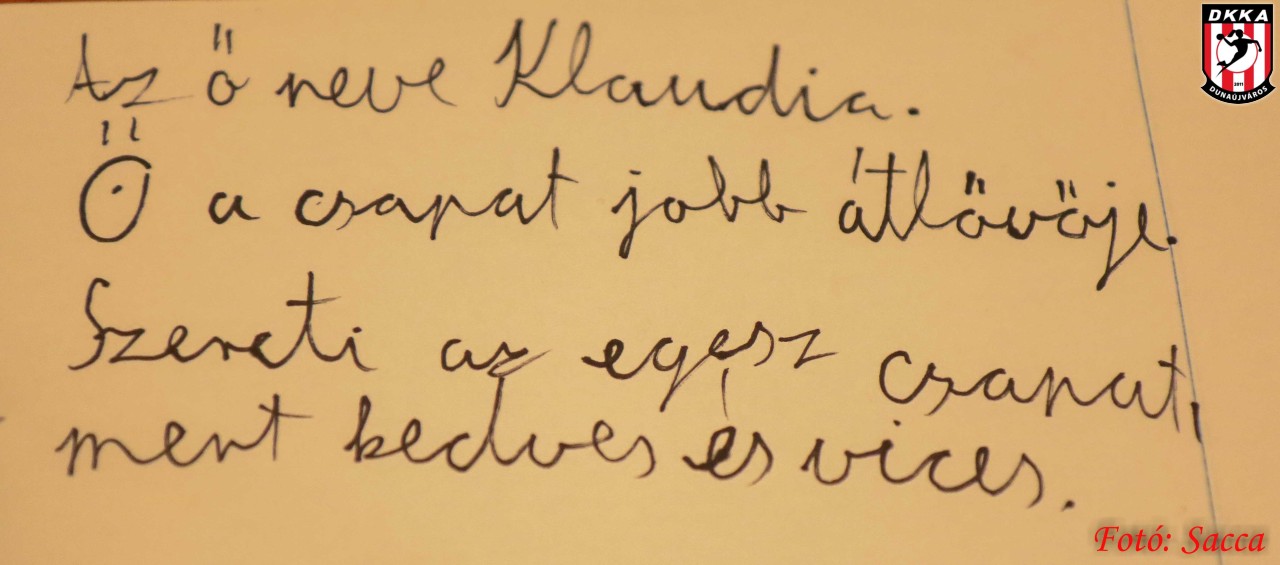 Az ő neve Klaudia.
Ő a csapat jobb átlövöje.
Szereti az egész csapat,
mert kedves és vices.
DKKA
2011
DUNAÚJVÁROS
Fotó: Sacca